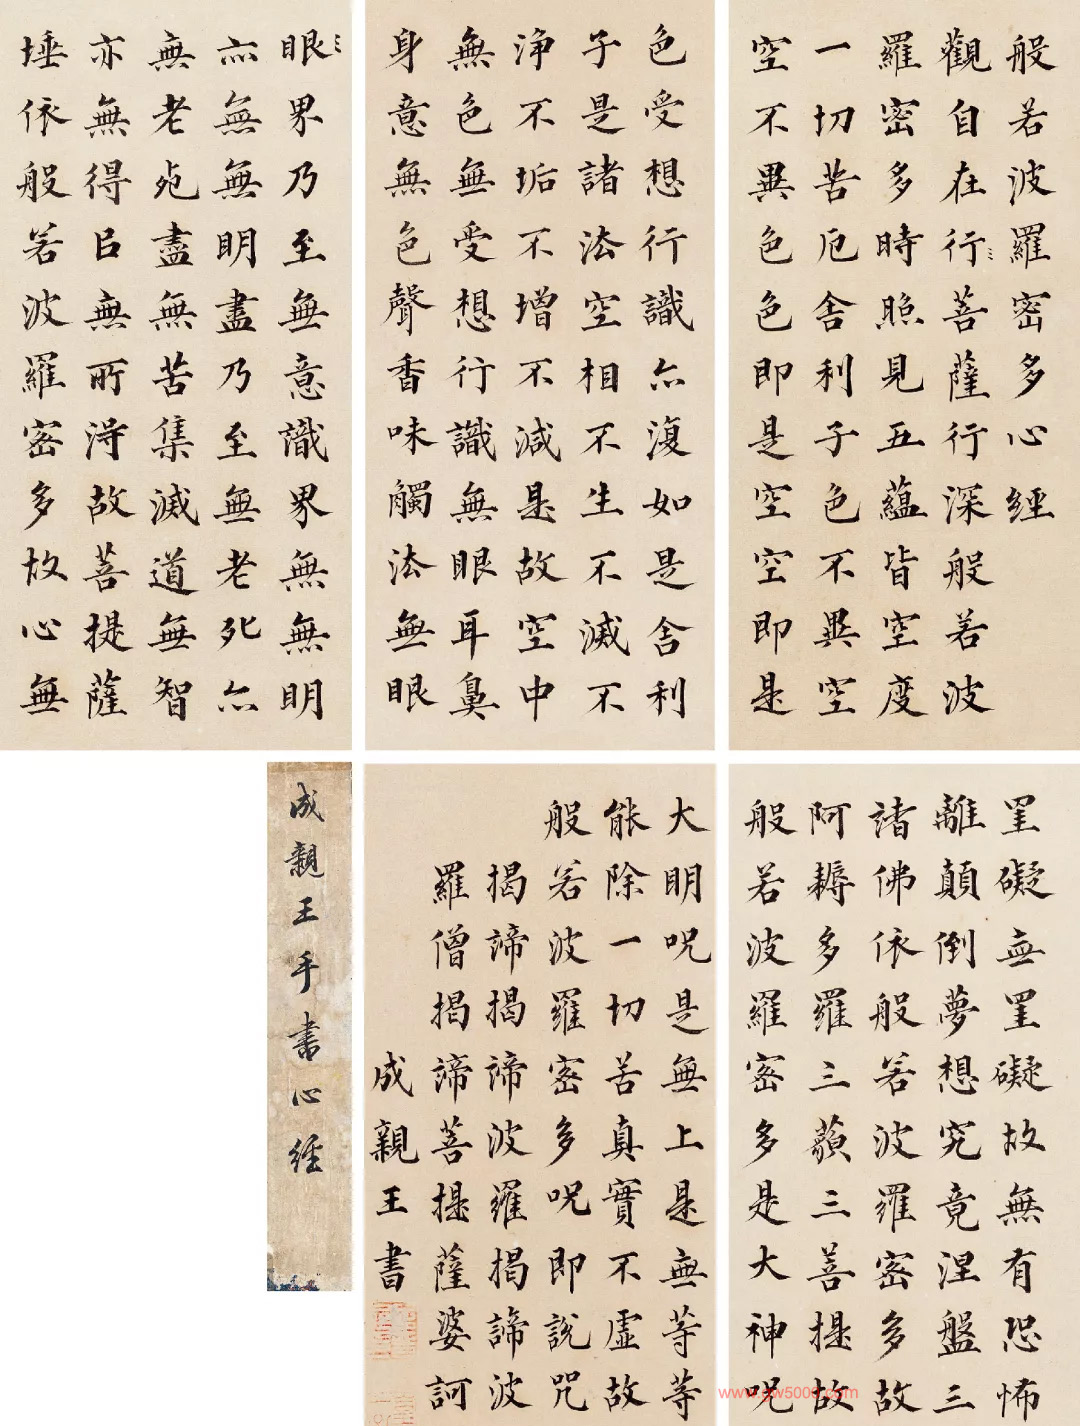 般若波羅密多心經
觀自在行菩薩行深般若波
羅密多時照見五蘊皆空度
一切苦厄舍利子色不異空
空不異色色即是空空即是
色受想行識亦復如是舍利
子是諸法空相不生不滅不
淨不垢不增不減是故空中
無色無受想行識無眼耳鼻
身意無色聲香味觸法無眼
眼界乃至無意識界無無明
亦無無明盡乃至無老死亦
無老死盡無苦集滅道無智
亦無得㠯無所得故菩提薩
埵依般若波羅密多故心無
罣礙無罣礙故無有恐怖
離顛倒夢想究竟涅盤三
諸佛依般若波羅密多故
阿耨多羅三藐三菩提故
般若波羅密多是大神呪
大明呪是無上是無等等
能除一切苦真實不虛故
般若波羅密多呪即說咒
揭諦揭諦波羅揭諦波
羅僧揭諦菩提薩婆訶
成親王書
成親王手書心經